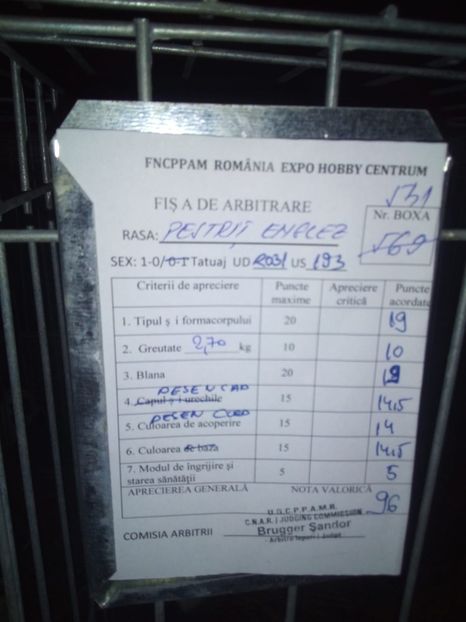 FNCPPAM ROMÂNIA EXPO HOBBY CENTRUM
FIȘA DE ARBITRARE
531
Nr. BOXA
569
RASA: PESTRIȚ ENGLEZ
SEX: 1-0/0-1 Tatuaj UD RO31 US 193
Criterii de apreciere Puncte maxime Apreciere critică Puncte acordate
1. Tipul și formacorpului 20 19
2. Greutate 2,70 kg 10 10
3. Blana 20 19
DESEN CAP
4. Capul și urechile 15 14,5
DESEN CORP
5. Culoarea de acoperire 15 14
6. Culoarea de baza 15 14,5
7. Modul de îngrijire și starea sănătății 5 5
APRECIEREA GENERALĂ NOTA VALORICĂ 96
U.G.C.P.P.A.M.R.
C.N.A.R. / JUDGING COMMISSION
COMISIA ARBITRII Brugger Șandor
Arbitru Iepuri / Judge